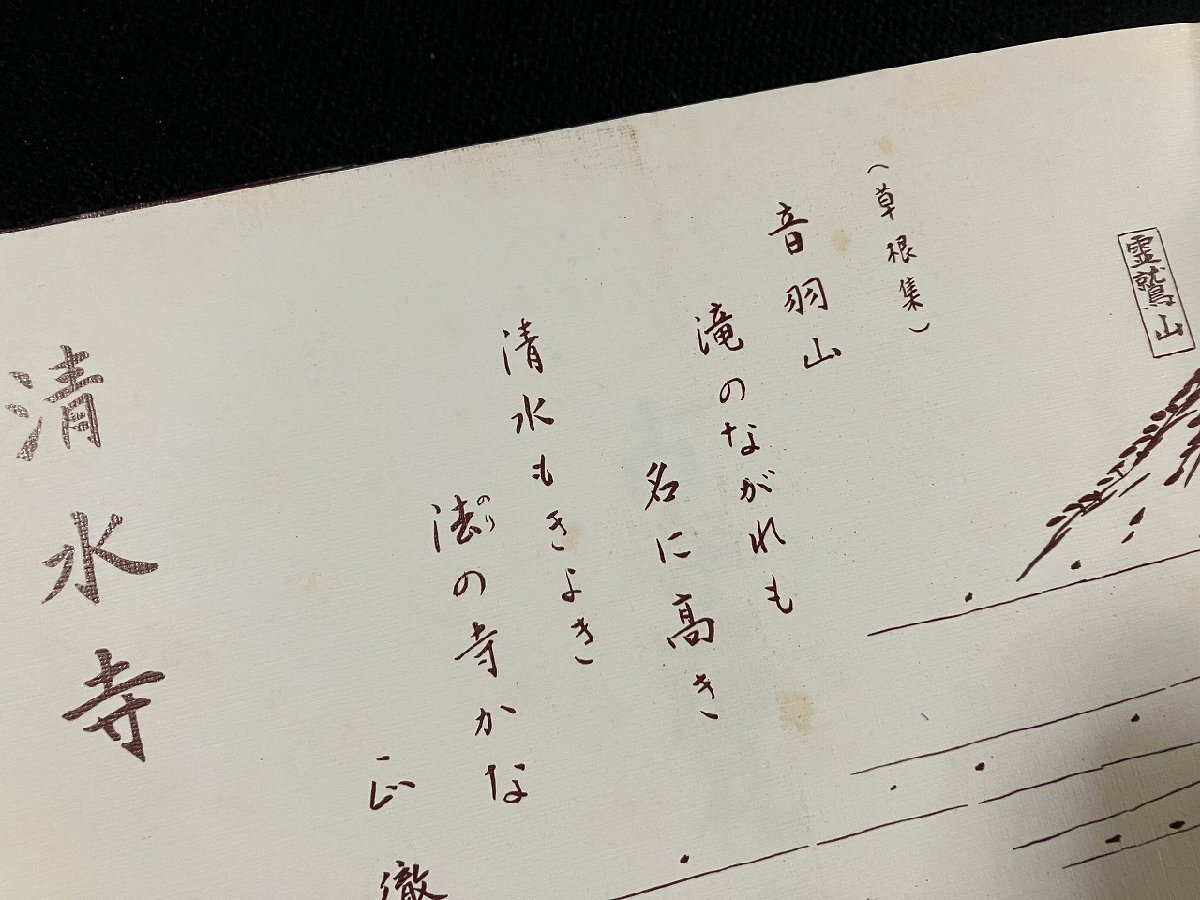 霊鷲山
（草根集）
音羽山
滝のながれも
名に高き
清水もきよき
法の寺かな
のり
正徹
清水寺